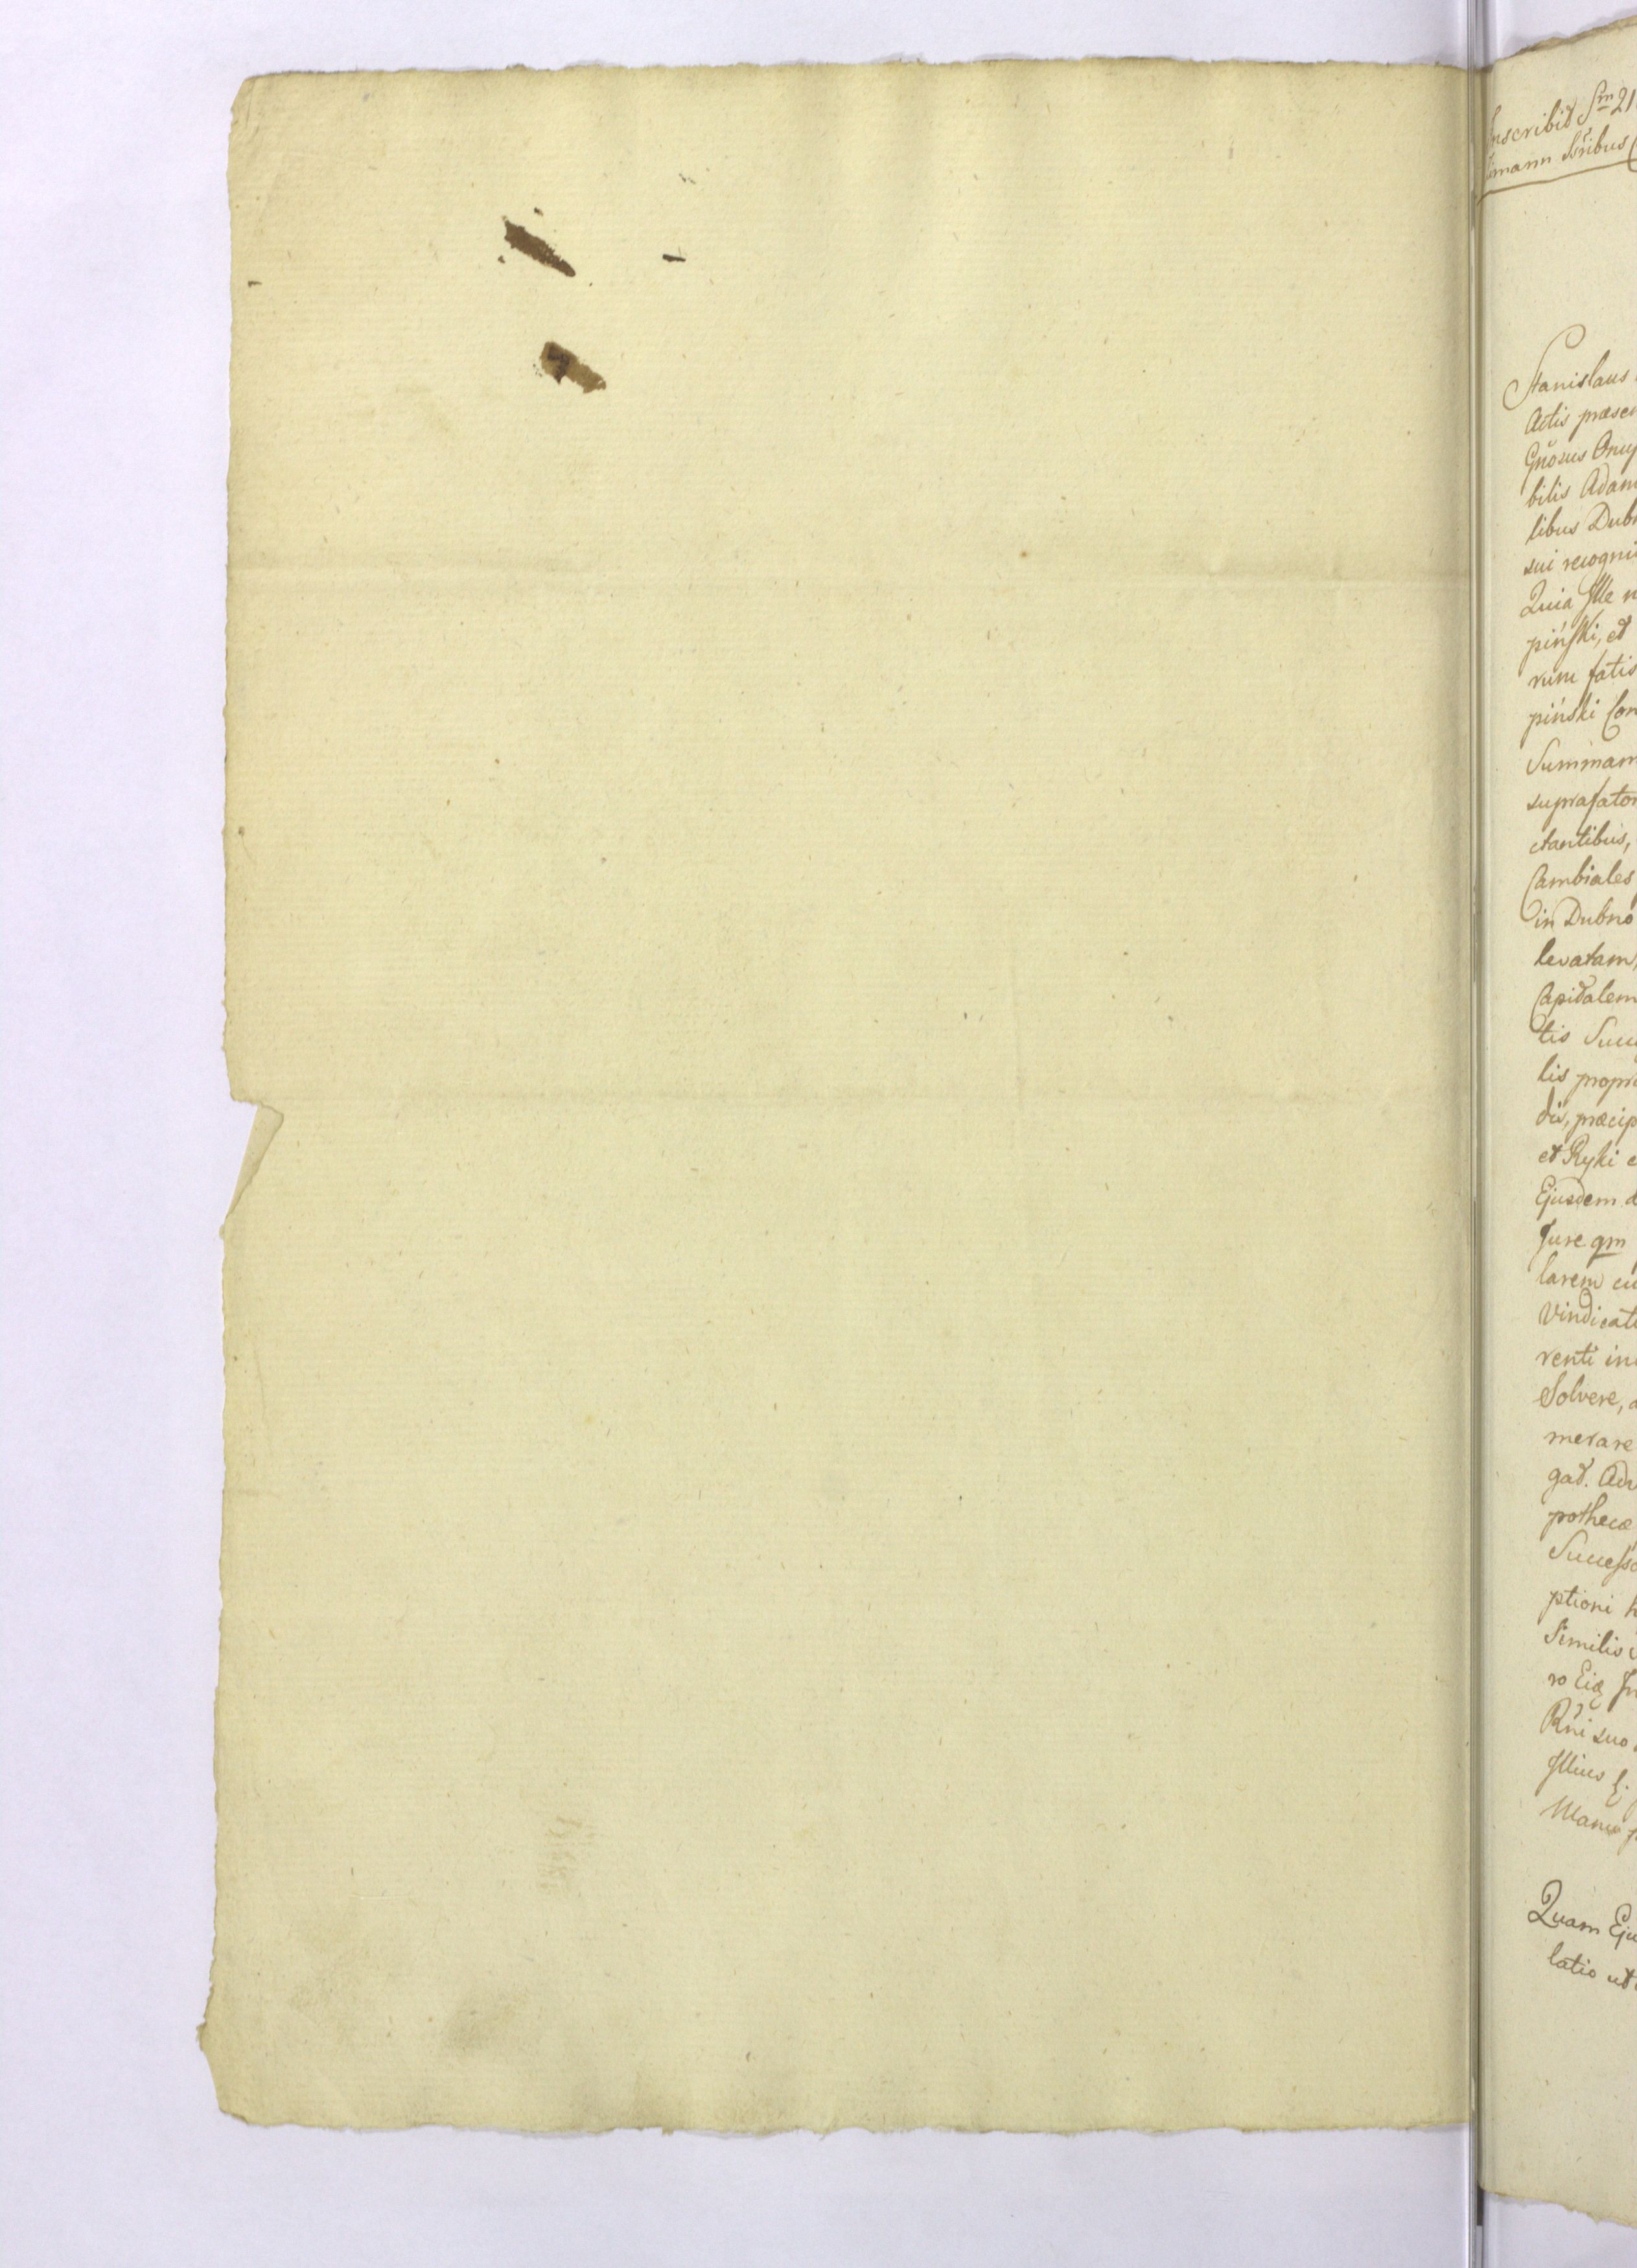 Inscribit Sm̄ 21
Sŕibus
Stanislaus
Actis praesen
Gnosus Onup
bilis Adam
libus Dubn
sui recogni
Quia Ille n
piński, et
rum fatis
pińki Con
Summam
suprafator
ctantibus,
Cambiales
in Dubno
levatam,
Capitalem
tis Succ
lis propri
dis, praecip
et Ryki e
Ejusdem d
Jure qm
larem cu
Vindicati
renti in
Solvere, a
merare
gat. Adv
pothecae
Successo
ptioni h
Similis
ro Eiq
Rńi suo
Illius
Manu p
Quam Eju
latio ut